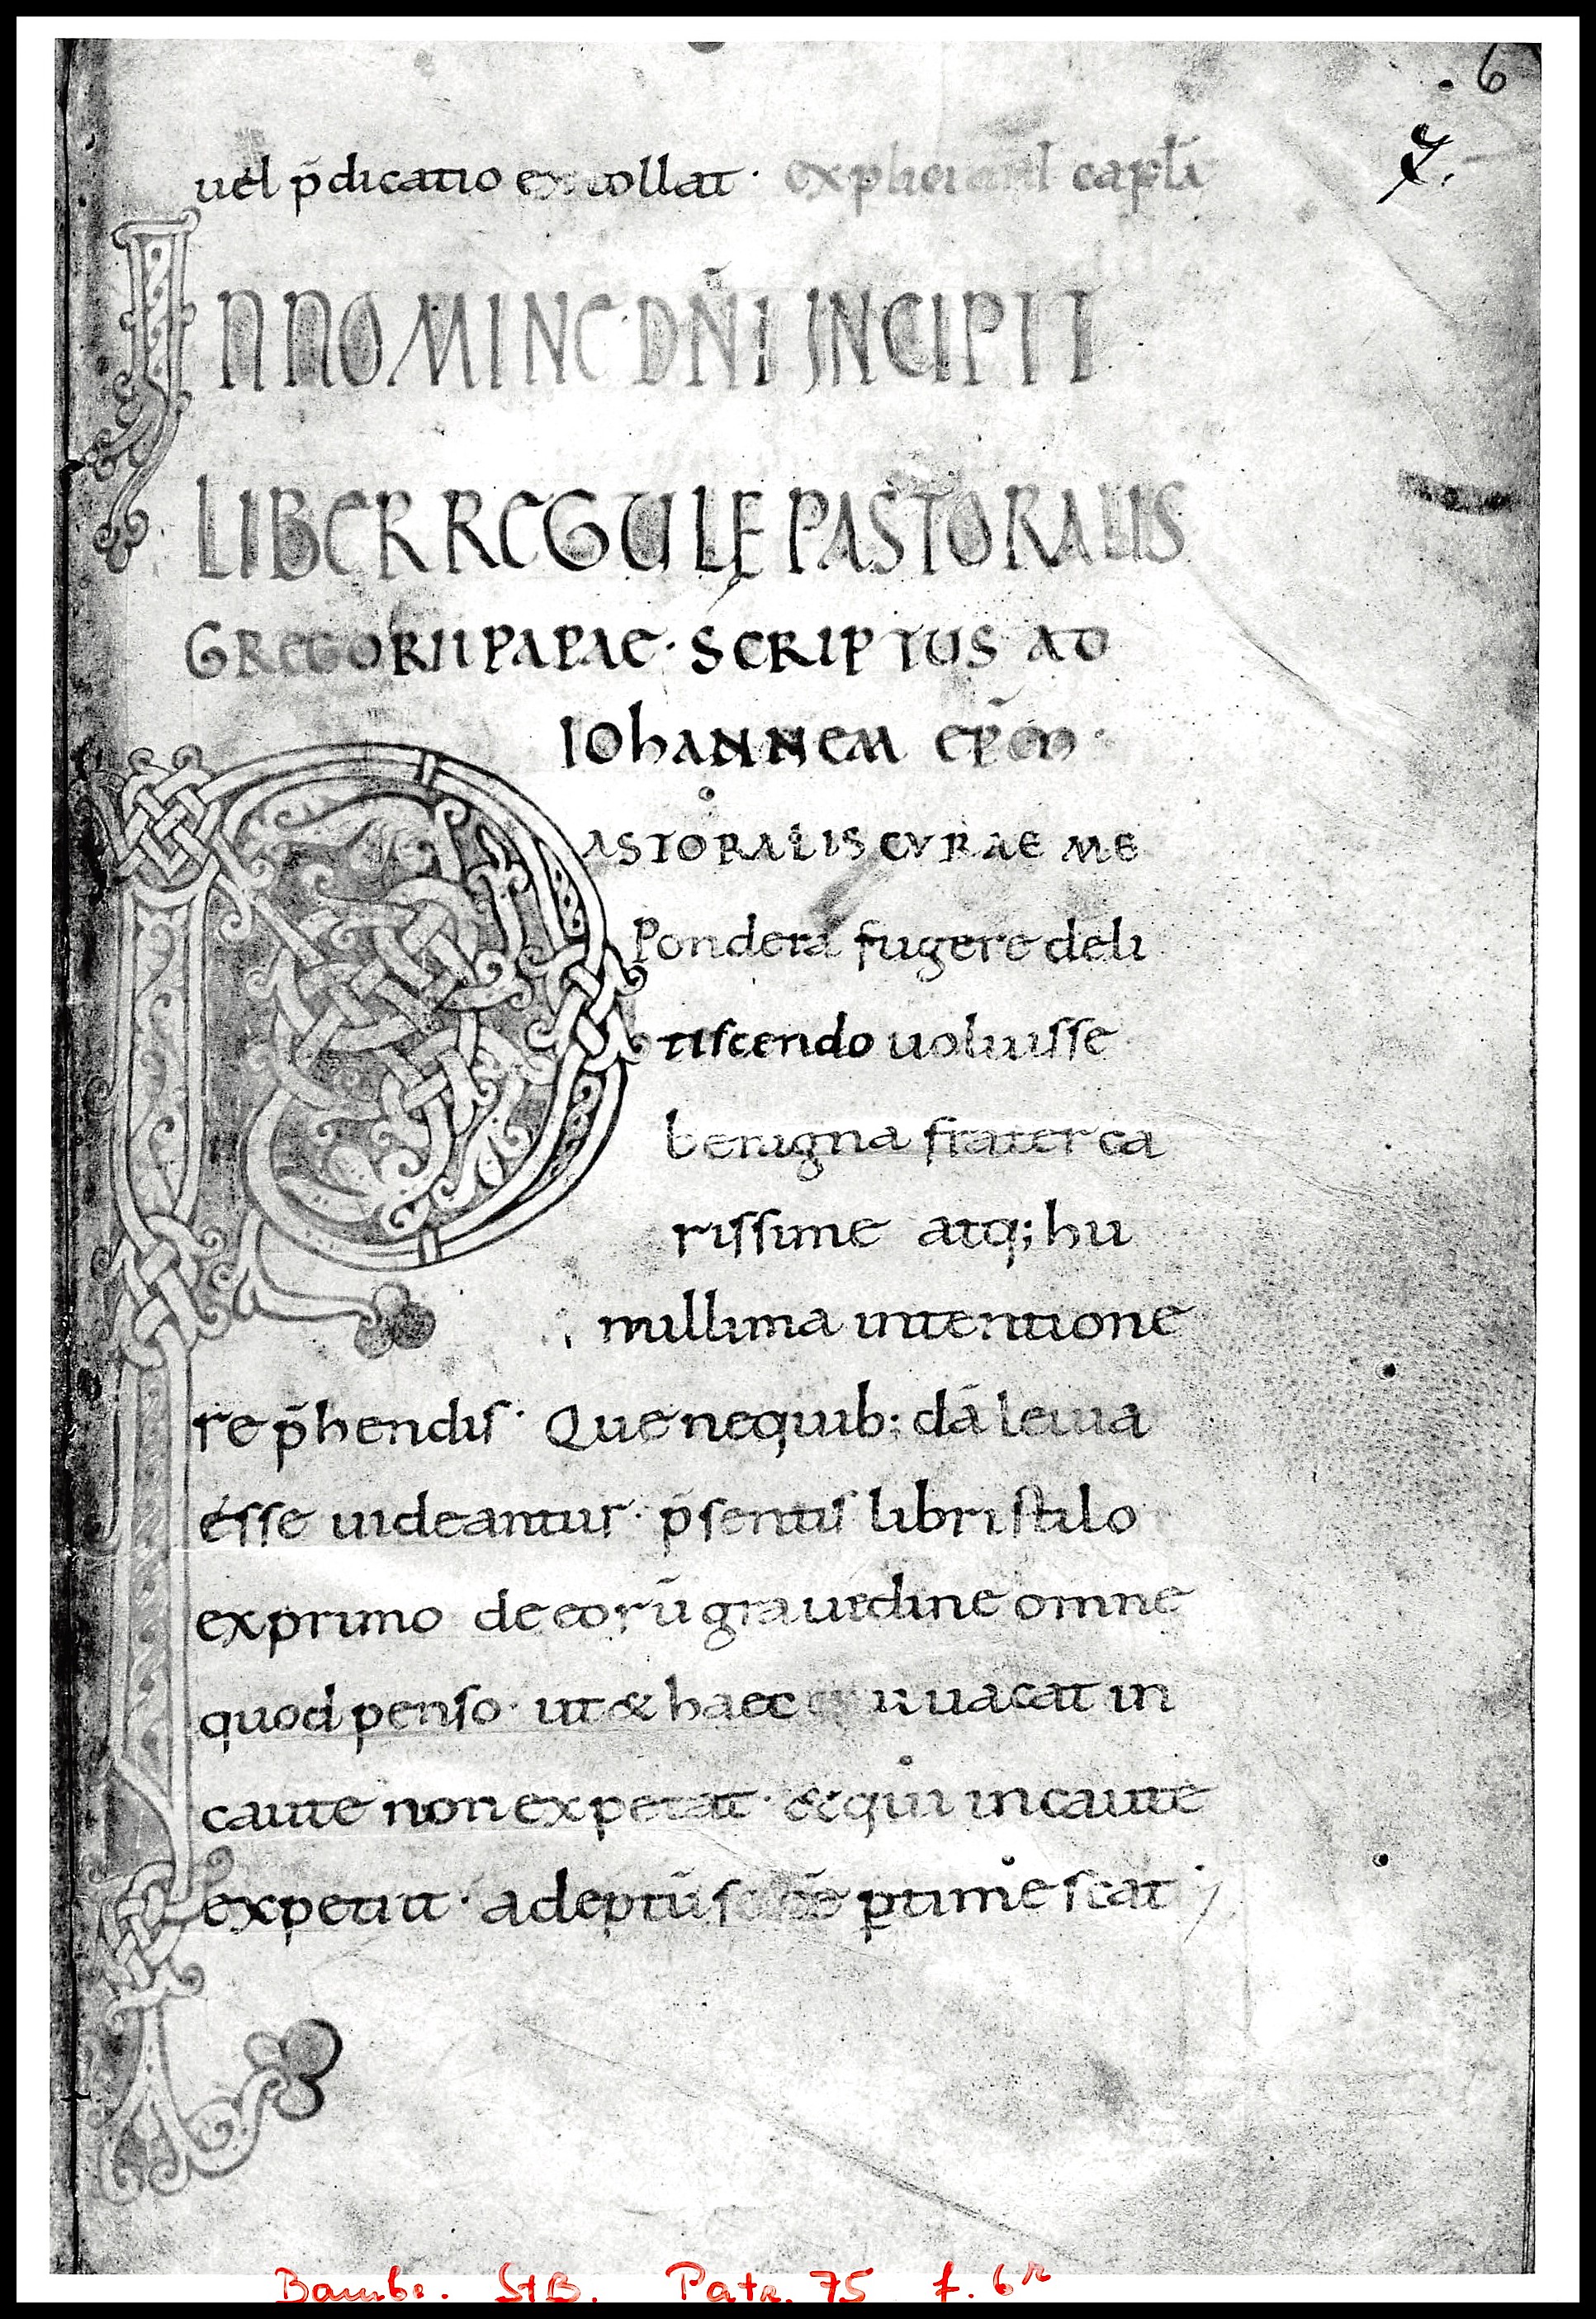 6
7.
uel p̄dicatio extollat· expliciunt cap̄l̄a
IN NOMINE DN̄I INCIPIT
LIBER REGULĘ PASTORALIS
GREGORII PAPAE· SCRIPTUS AD
IOhANNEM EP̄M·
PASTORALIS CVRAE ME
Pondera fugere deli
tiscendo uoluisse
benigna frater ca
rissime atq; hu
millima intentione
rep̄hendis· Que ne quib; dā leuia
esse uideantur· p̄sentis libri stilo
exprimo de eorū grauidine omne
quod penso· ut & haec qui uacat in
caute non expetat· & qui incaute
expetiit· adeptū se eē ꝑtimescat
Bambg. StB. Patr. 75 f. 6r